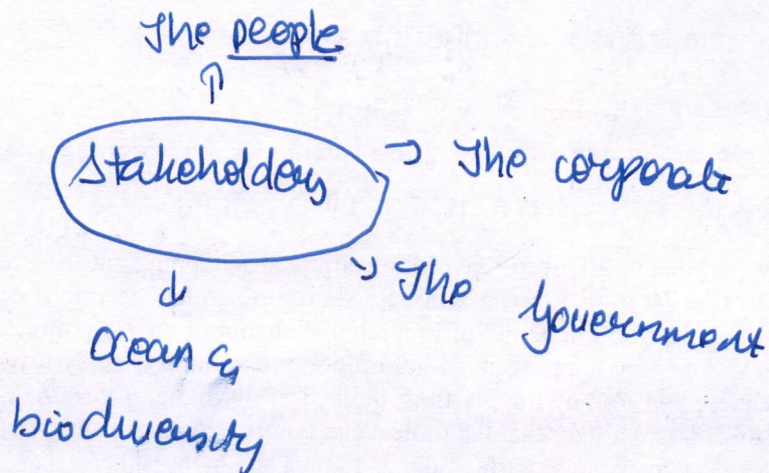 The people
Stakeholders
The corporate
The Government
Ocean &
biodiversity